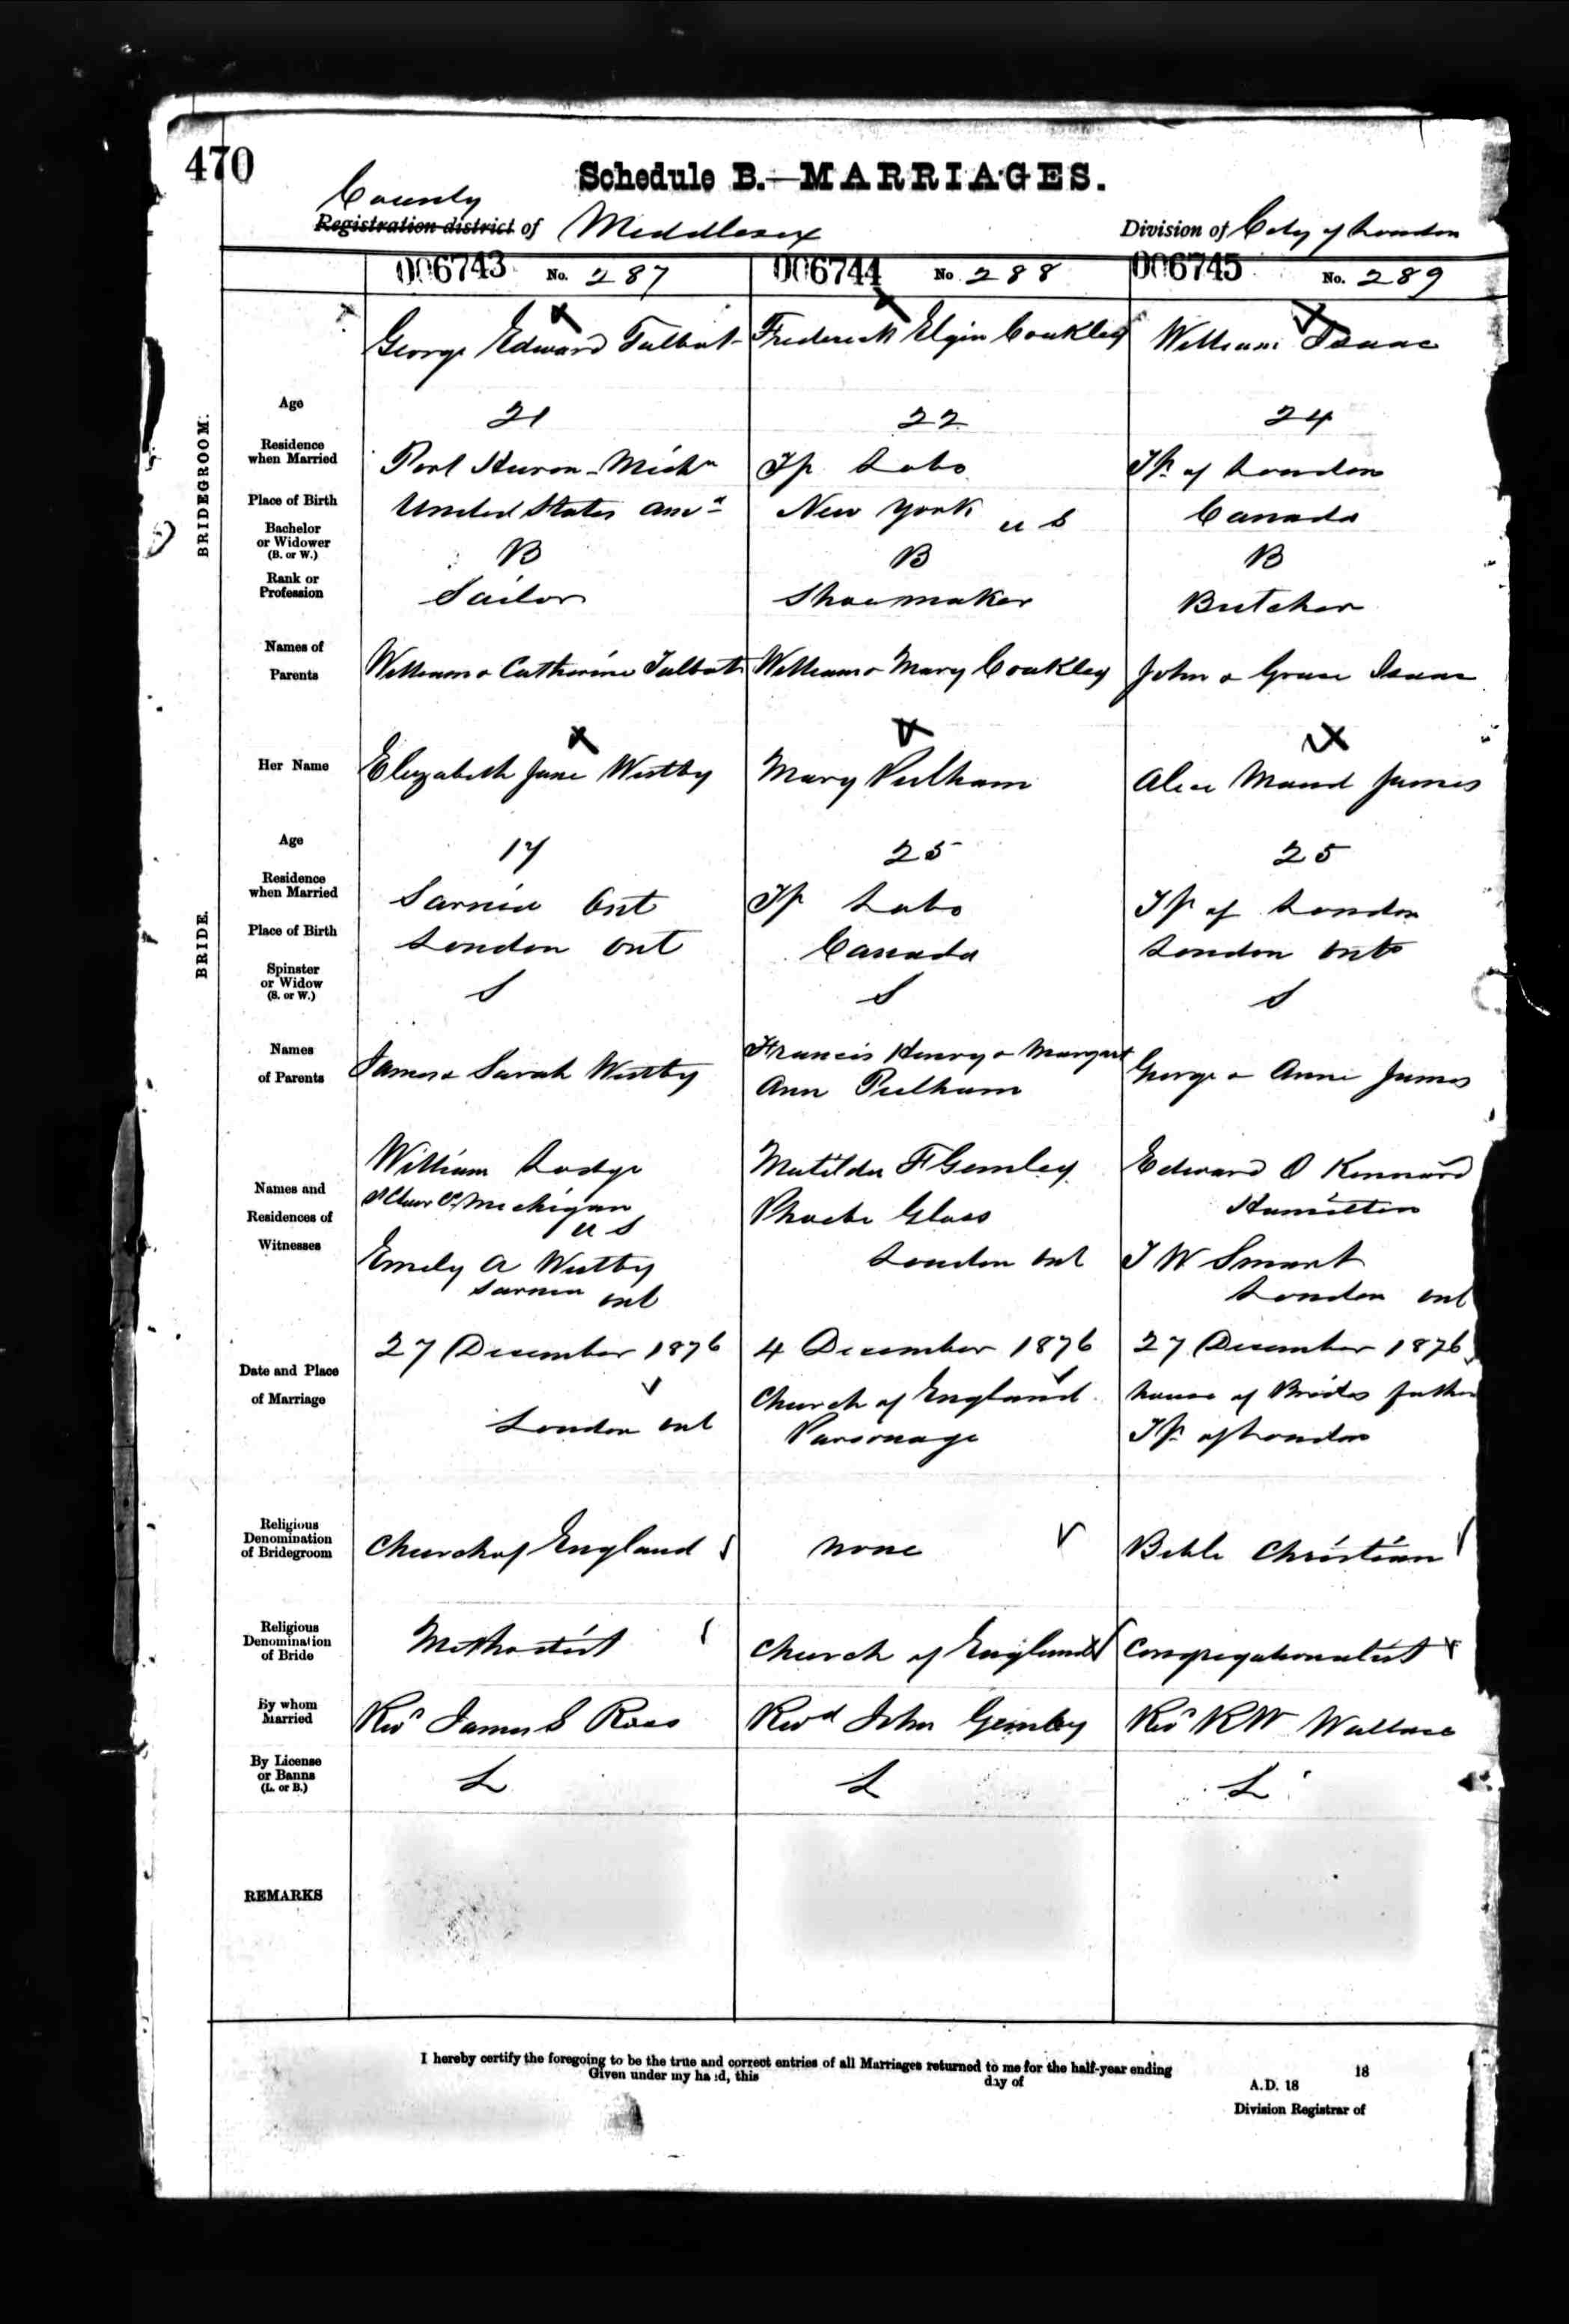 470
Schedule B.—MARRIAGES.
County
Registration district of Middlesex
Division of City of London
006743 No. 287 006744 No 288 006745 No. 289
BRIDEGROOM.
George Edward Talbot Frederick Elgin Coakley William Isaac
Age 21 22 24
Residence when Married Port Huron - Michn Tp Lobo Tp of London
Place of Birth United States Amca New York U S Canada
Bachelor or Widower (B. or W.) B B B
Rank or Profession Sailor Shoemaker Butcher
Names of Parents William & Catherine Talbot William & Mary Coakley John & Grace Isaac
BRIDE.
Her Name Elizabeth Jane Westby Mary Pulham Alice Maud James
Age 17 25 25
Residence when Married Sarnia Ont Tp Lobo Tp of London
Place of Birth London Ont Canada London Onto
Spinster or Widow (S. or W.) S S S
Names of Parents James & Sarah Westby Francis Henry & Margart Ann Pulham George & Anne James
Names and Residences of Witnesses
William Lodge
St Clair Co Michigan
U S
Emily A Westby
Sarnia Ont
Matilda F Gemley
Phoebe Glass
London Ont
Edward O Kennard
Hamilton
J W Smart
London Ont
Date and Place of Marriage
27 December 1876
London Ont
4 December 1876
Church of England
Parsonage
27 December 1876
house of Brides father
Tp of London
Religious Denomination of Bridegroom Church of England none Bible Christian
Religious Denomination of Bride Methodist Church of England Congregationalist
By whom Married Revd James S Ross Revd John Gemley Revd R W Wallace
By License or Banns (L. or B.) L L L
REMARKS
I hereby certify the foregoing to be the true and correct entries of all Marriages returned to me for the half-year ending 18
Given under my hand, this day of A.D. 18
Division Registrar of